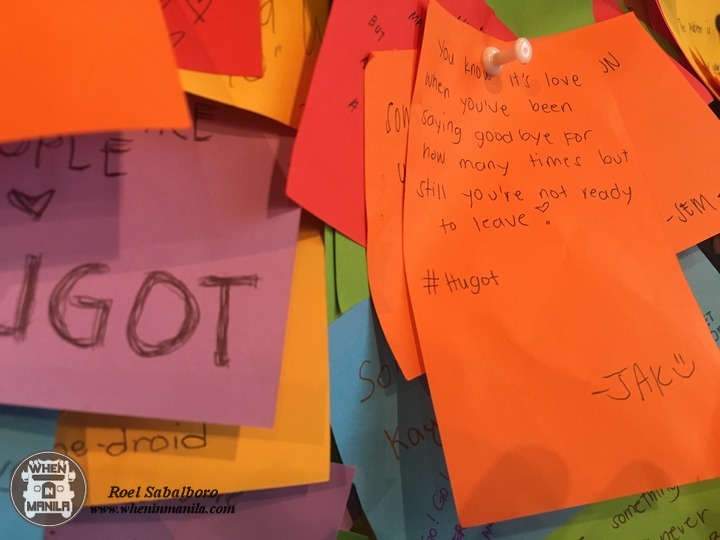 BUT
You know it's love
when you've been
saying goodbye for
how many times but
still you're not ready
to leave
#Hugot
-JAK
IN
-JEM-
SOM
PEOPLE
UGOT
me-droid
So
Kay
GO! GO!
something
WHEN
IN
MANILA
Roel Sabalboro
www.wheninmanila.com